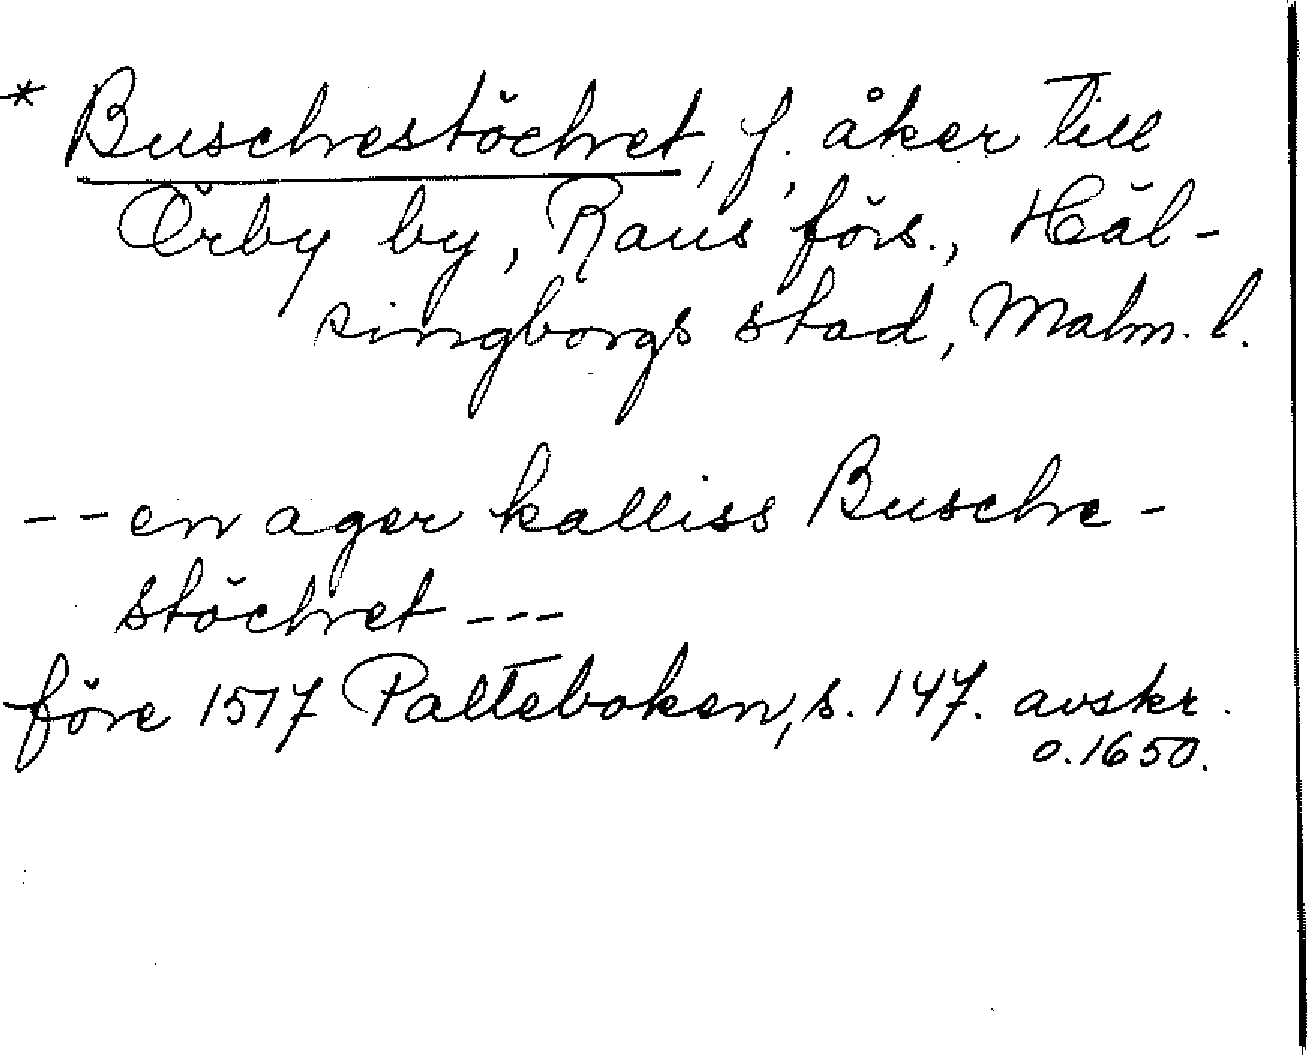 * Buschestöchet, f. åker till
Örby by, Raus förs., Häl-
singborgs stad, Malm. l.
-- en ager kalliss Busche-
stöchet ---
före 1517 Palteboken, s. 147. avskr.
o. 1650.